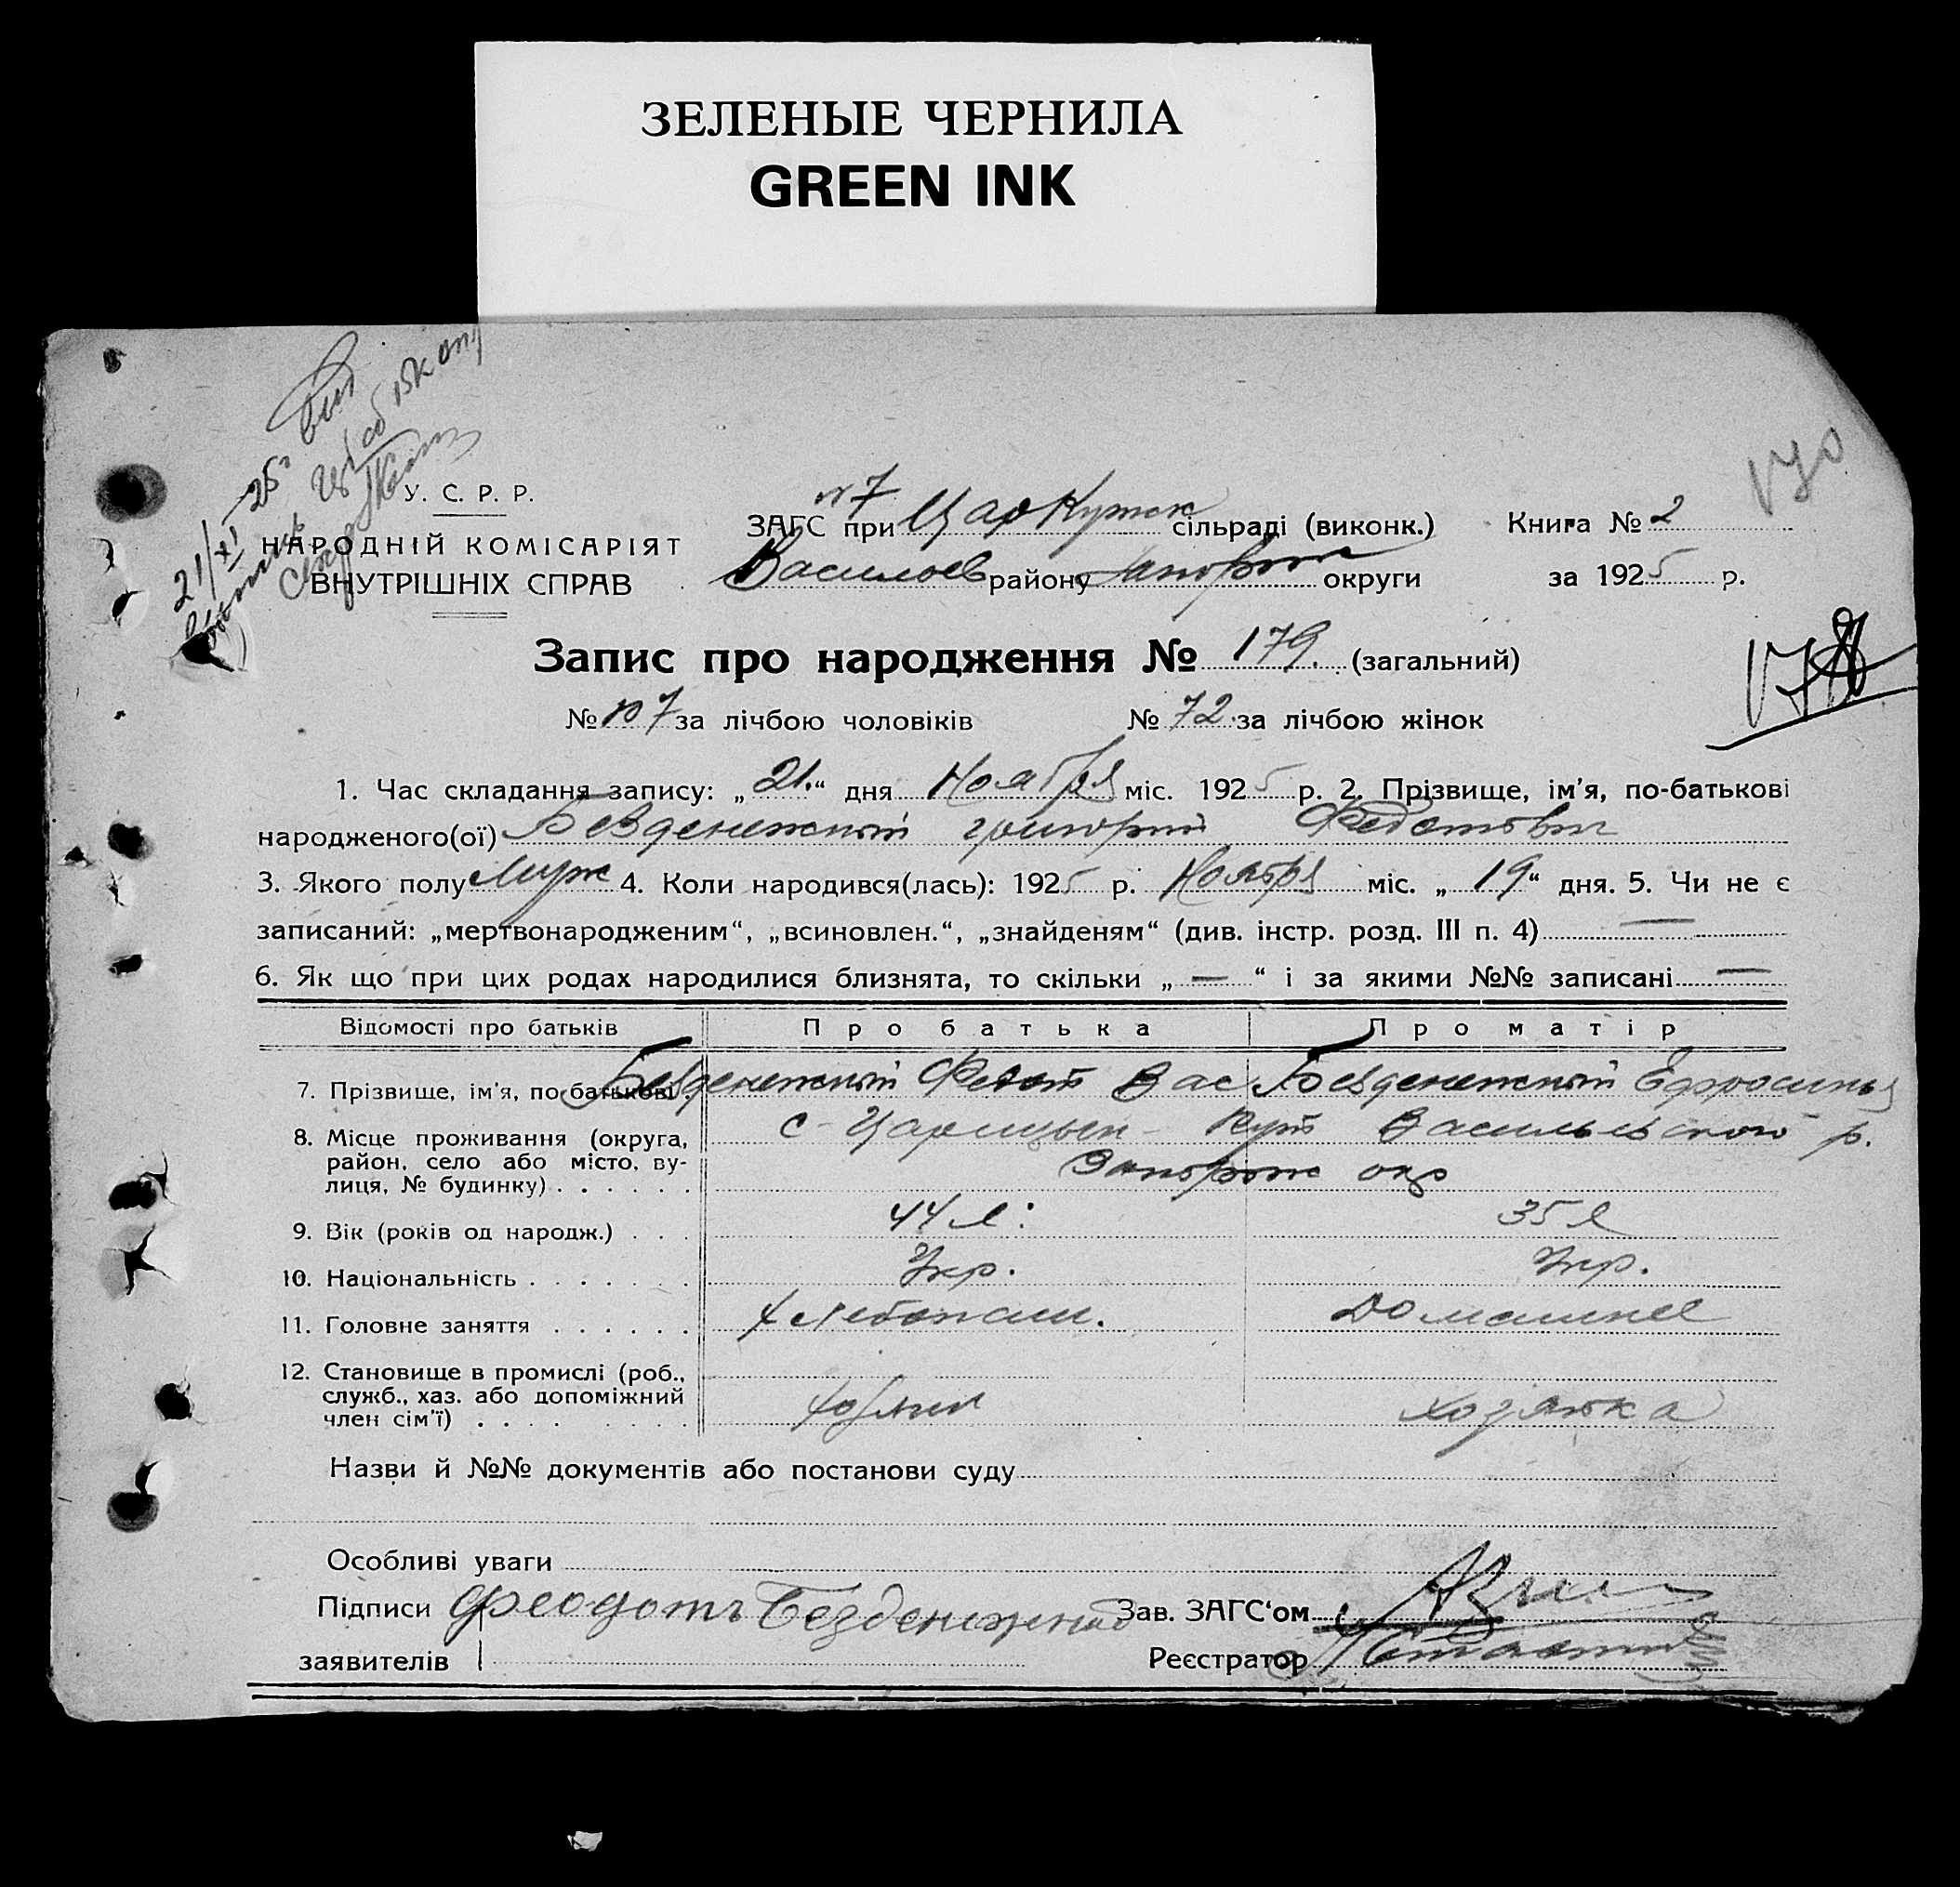 ЗЕЛЕНЫЕ ЧЕРНИЛА
GREEN INK
170
21/XI–25
У. С. Р. Р.
НАРОДНІЙ КОМІСАРІЯТ
ВНУТРІШНІХ СПРАВ
ЗАГС при ЦарКутск сільраді (виконк.)
Василев району Запорож округи
Книга № 2
за 1925 р.
Запис про народження № 179. (загальний)
178
№ 107 за лічбою чоловіків № 72 за лічбою жінок
1. Час складання запису: „21.“ дня Ноября міс. 1925 р. 2. Прізвище, ім’я, по-батькові
народженого(ої) Безденежный Григорий Федотович
3. Якого полу Муж 4. Коли народився(лась): 1925 р. Ноября міс. „19“ дня. 5. Чи не є
записаний: „мертвонародженим“, „всиновлен.“, „знайденям“ (див. інстр. розд. III п. 4) —
6. Як що при цих родах народилися близнята, то скільки „—“ і за якими №№ записані —
Відомості про батьків Про батька Про матір
7. Прізвище, ім’я, по-батькові Безденежный Федот Вас Безденежный Ефросинья
8. Місце проживання (округа, с-Царицын-Кут Васильевского р.
район, село або місто, ву-
лиця, № будинку) . . . . . . Запорож окр
9. Вік (років од народж.) . . . 44 л: 35 л
10. Національність . . . . . . . Укр. Укр.
11. Головне заняття . . . . . . Хлебопаш. Домашнее
12. Становище в промислі (роб.,
служб., хаз. або допоміжний
член сім’ї) . . . . . . . . Хозяин хозяйка
Назви й №№ документів або постанови суду
Особливі уваги
Підписи Феодотъ Безденежный Зав. ЗАГС‘ом
заявителів Реєстратор